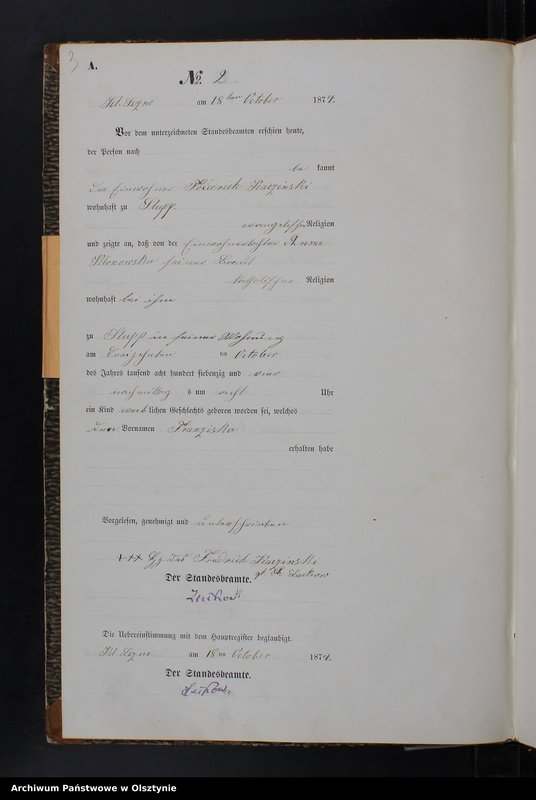 3
A.
No. 2
am 18ten October 1874.
Vor dem unterzeichneten Standesbeamten erschien heute,
der Person nach
be kannt
der Einwohner Friedrich Kaczinski
wohnhaft zu Stupp.
evangelischer Religion
und zeigte an, daß von der Einwohnertochter Anna
Klonowska seiner Braut
katholischer Religion
wohnhaft bei ihm
zu Stupp in seiner Wohnung
am dreizehnten ten October
des Jahres tausend acht hundert siebenzig und vier
nachmittag s um acht Uhr
ein Kind weib lichen Geschlechts geboren worden sei, welches
den Vornamen Franziska
erhalten habe
Vorgelesen, genehmigt und unterschrieben
+++ Hz. des Friedrich Kaczinski
Der Standesbeamte.
Die Uebereinstimmung mit dem Hauptregister beglaubigt.
am 18 ten October 1874.
Der Standesbeamte.
Archiwum Państwowe w Olsztynie